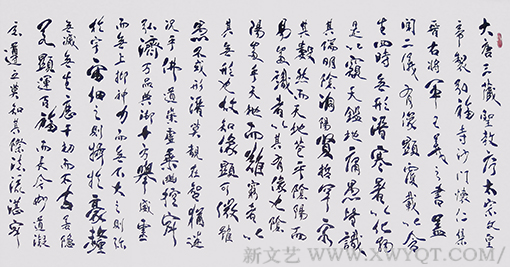 大唐三藏聖教序太宗文皇
帝製弘福寺沙門懷仁集
晉右將軍王羲之書蓋
聞二儀有像顯覆載以含
生四時無形潛寒暑以化物
是以窺天鑑地庸愚皆識
其端明陰洞陽賢哲罕窮
其數然而天地苞乎陰陽而
易識者以其有像也陰
陽處乎天地而難窮者以
其無形也故知像顯可徵雖
愚不惑形潛莫覩在智猶迷
況乎佛道崇虛乘幽控寂
弘濟萬品典御十方舉威靈
而無上抑神力而無下大之則彌
於宇宙細之則攝於毫釐
無滅無生歷千劫而不古若隱
若顯運百福而長今妙道凝
玄遵之莫知其際法流湛寂
新文艺 WWW.XWYQT.COM/